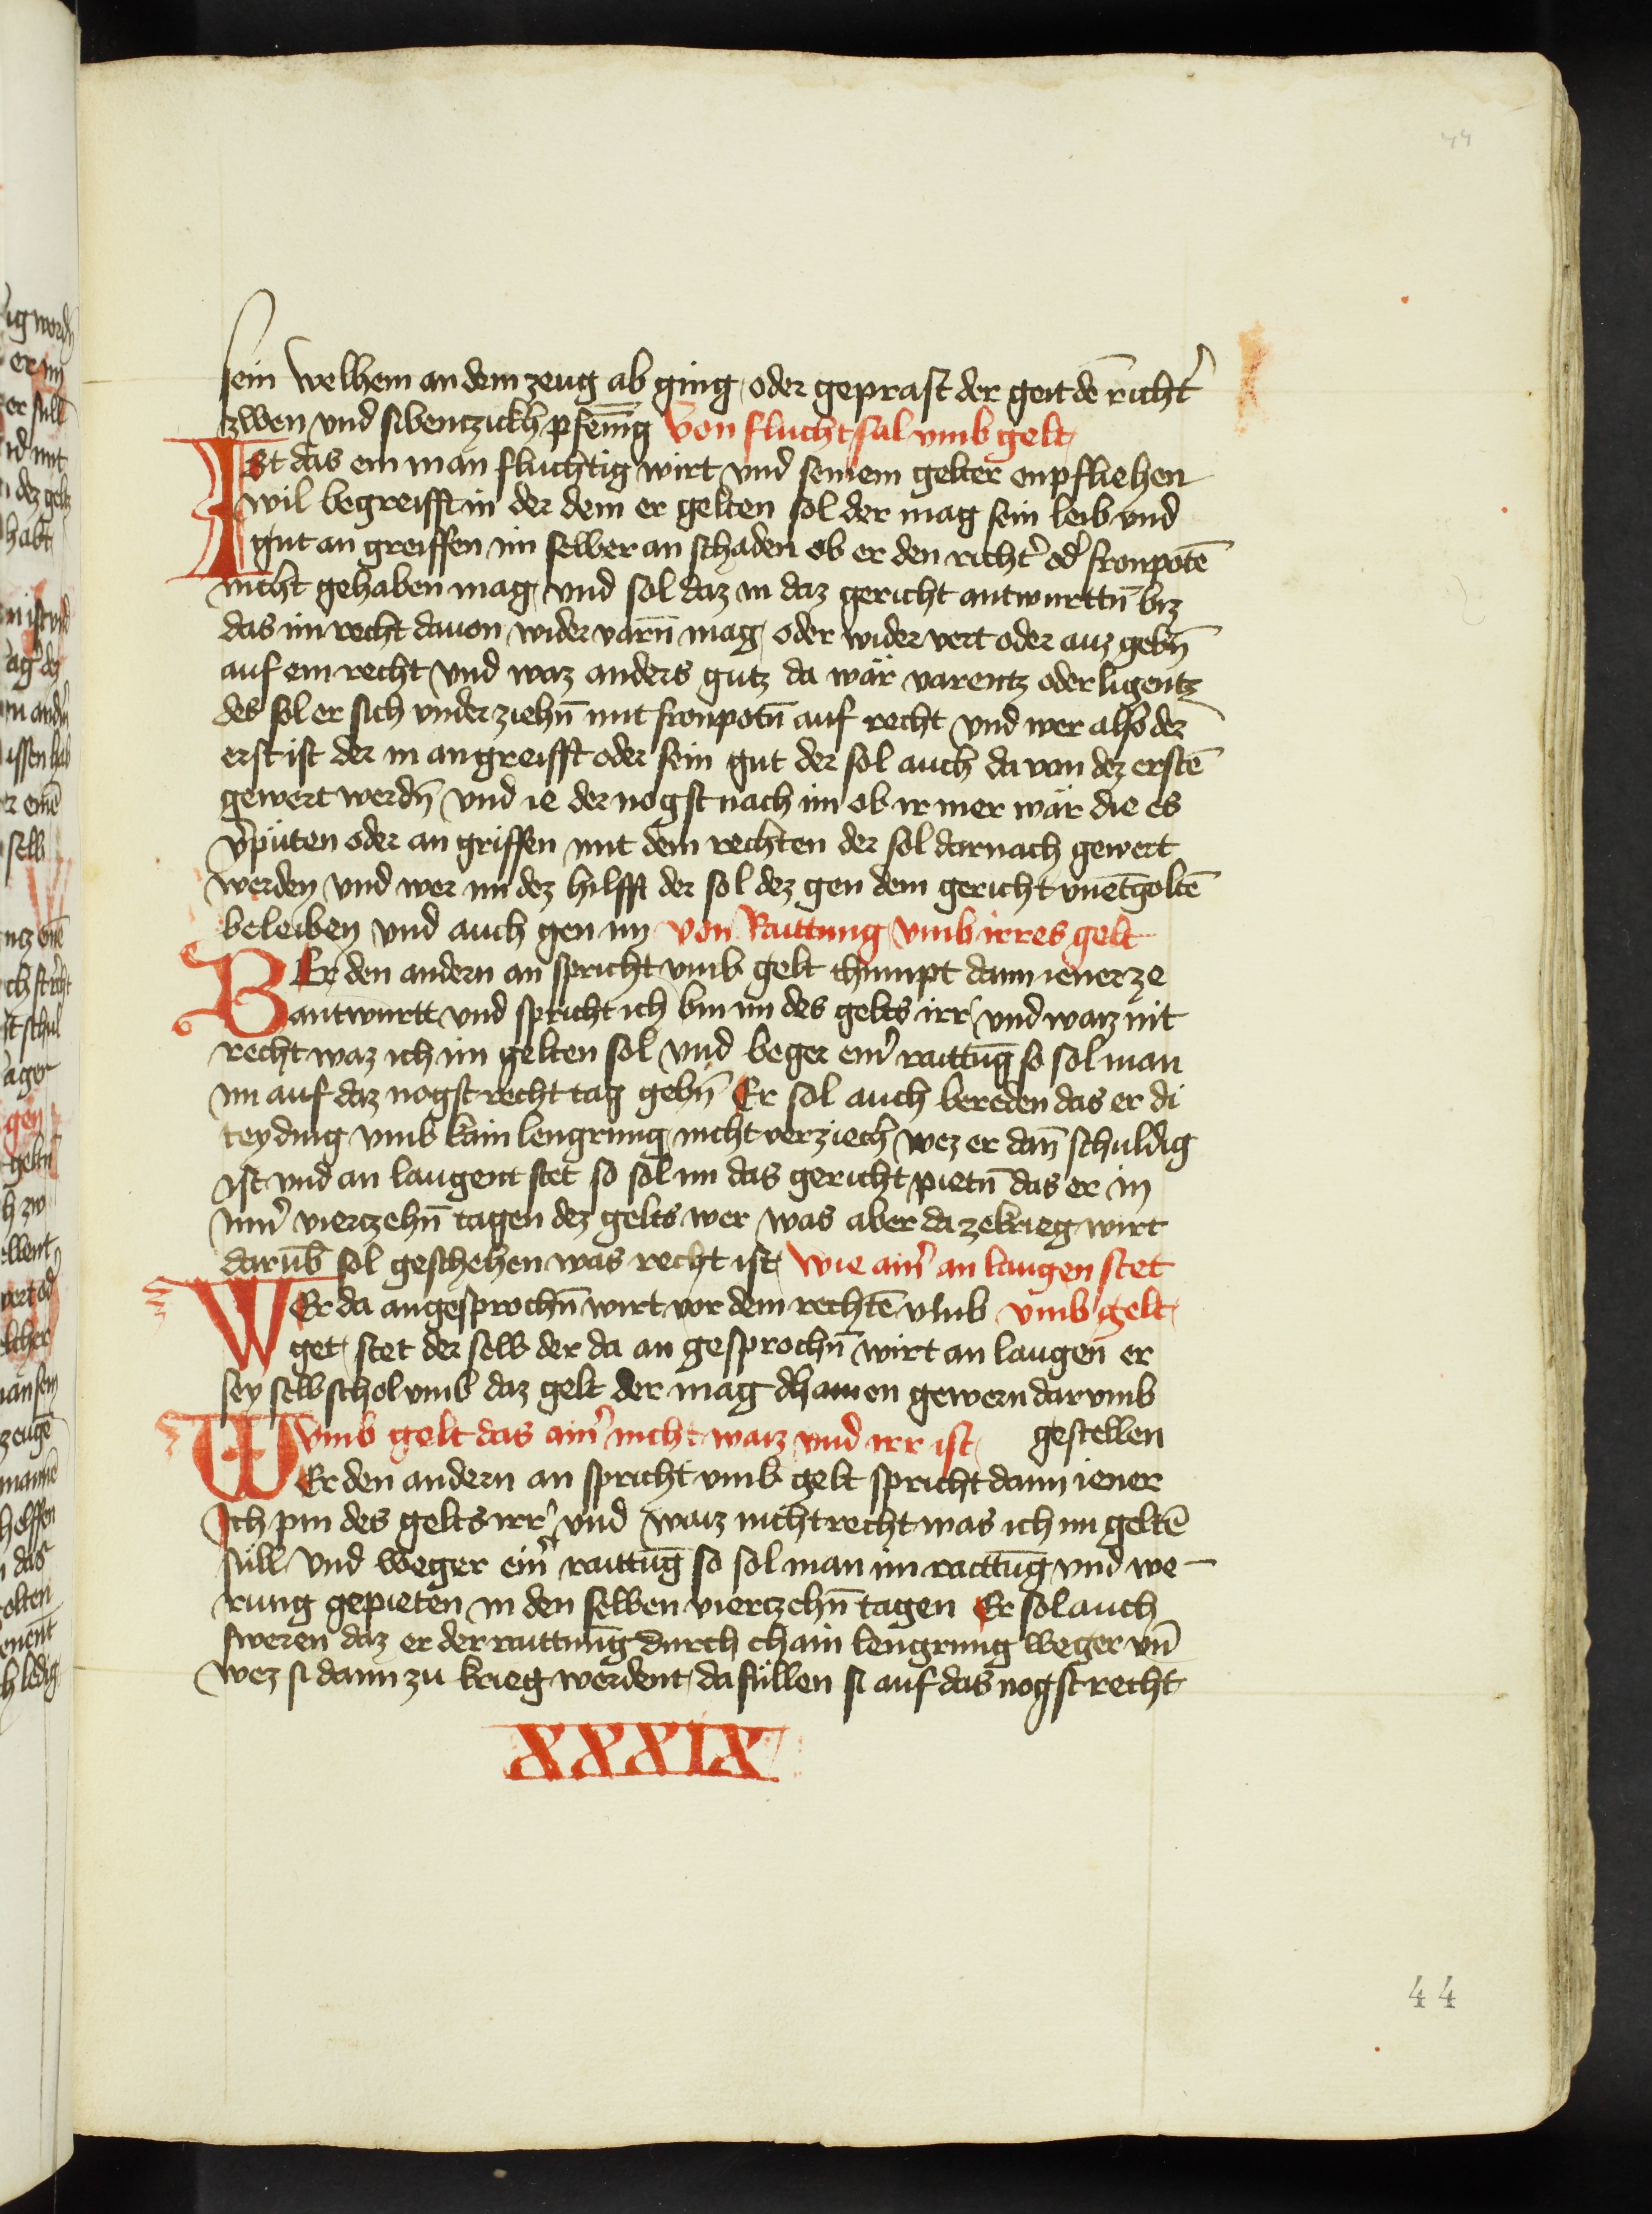 44
sein welhem an dem zeug ab ging oder geprast der geit dē richt᷑
zwen und sibentzickh pfenīg Von flucht sal vmb gelt
Ist das ein man fluchtig wirt vnd seinem gelter enpfliehen
wil begreifft in der dem er gelten sol der mag sein leib vnd
gut an greiffen im selber an schaden ob er den richt᷑ od᷑ fronpotē
nicht gehaben mag vnd sol daz in daz gericht antwurttn̄ biz
das im recht dauon wider varn̄ mag oder wider vert oder auz gebn̄
auf ein recht vnd waz anders gutz da wär varentz oder ligentz
des sol er sich vnder ziehn̄ mit fronpotn̄ auf recht vnd wer also der
erst ist der in angreifft oder sein gut der sol auch da von dez erstē
gewert werdn̄ vnd ie der nogst nach im ob ir mer wär die es
v᷑püten oder an griffen mit dem rechten der sol darnach gewert
werden vnd wer im dez hilfft der sol dez gen dem gericht vnētgoltē
beleiben vnd auch gen im von Raittung vmb irres gelt
BEr den andern an spricht vmb gelt chumpt dann iener ze
antwurtt vnd spricht ich bin im des gelts irr vnd waiz nit
recht waz ich im gelten sol vnd beger ein᷑ raittūg so sol man
im auf daz nogst recht tag gebn̄ Er sol auch bereden das er di
teyding vmb kain lengrung nicht verziech wez er dan̄ schuldig
ist vnd an laugent stet so sol im das gericht pietn̄ das er in
inn᷑ viertzehn̄ tagen dez gelts wer was aber da ze krieg wirt
darūb sol geschehen was recht ist wie ain᷑ an laugen stet
WEr da angesprochn̄ wirt vor dem rechtē vmb vmb gelt
get stet der selb der da an gesprochn̄ wirt an laugen er
sey selbschol vmb daz gelt der mag dhainen gewern dar vmb
vmb gelt das ain᷑ nicht waiz vnd irr ist gestellen
WEr den andern an spricht vmb gelt spricht dann iener
Ich pin des gelts irr᷑ vnd waiz nicht recht was ich im geltē
süll vnd weger ein᷑ raittūg so sol man im raittūg vnd we-
rung gepieten in den selben viertzehn̄ tagen Er sol auch
sweren daz er der raittung durch chain lengrung weger vn̄
wez si dann zu krieg werdent da süllen si auf das nogst recht
XXXIX
44